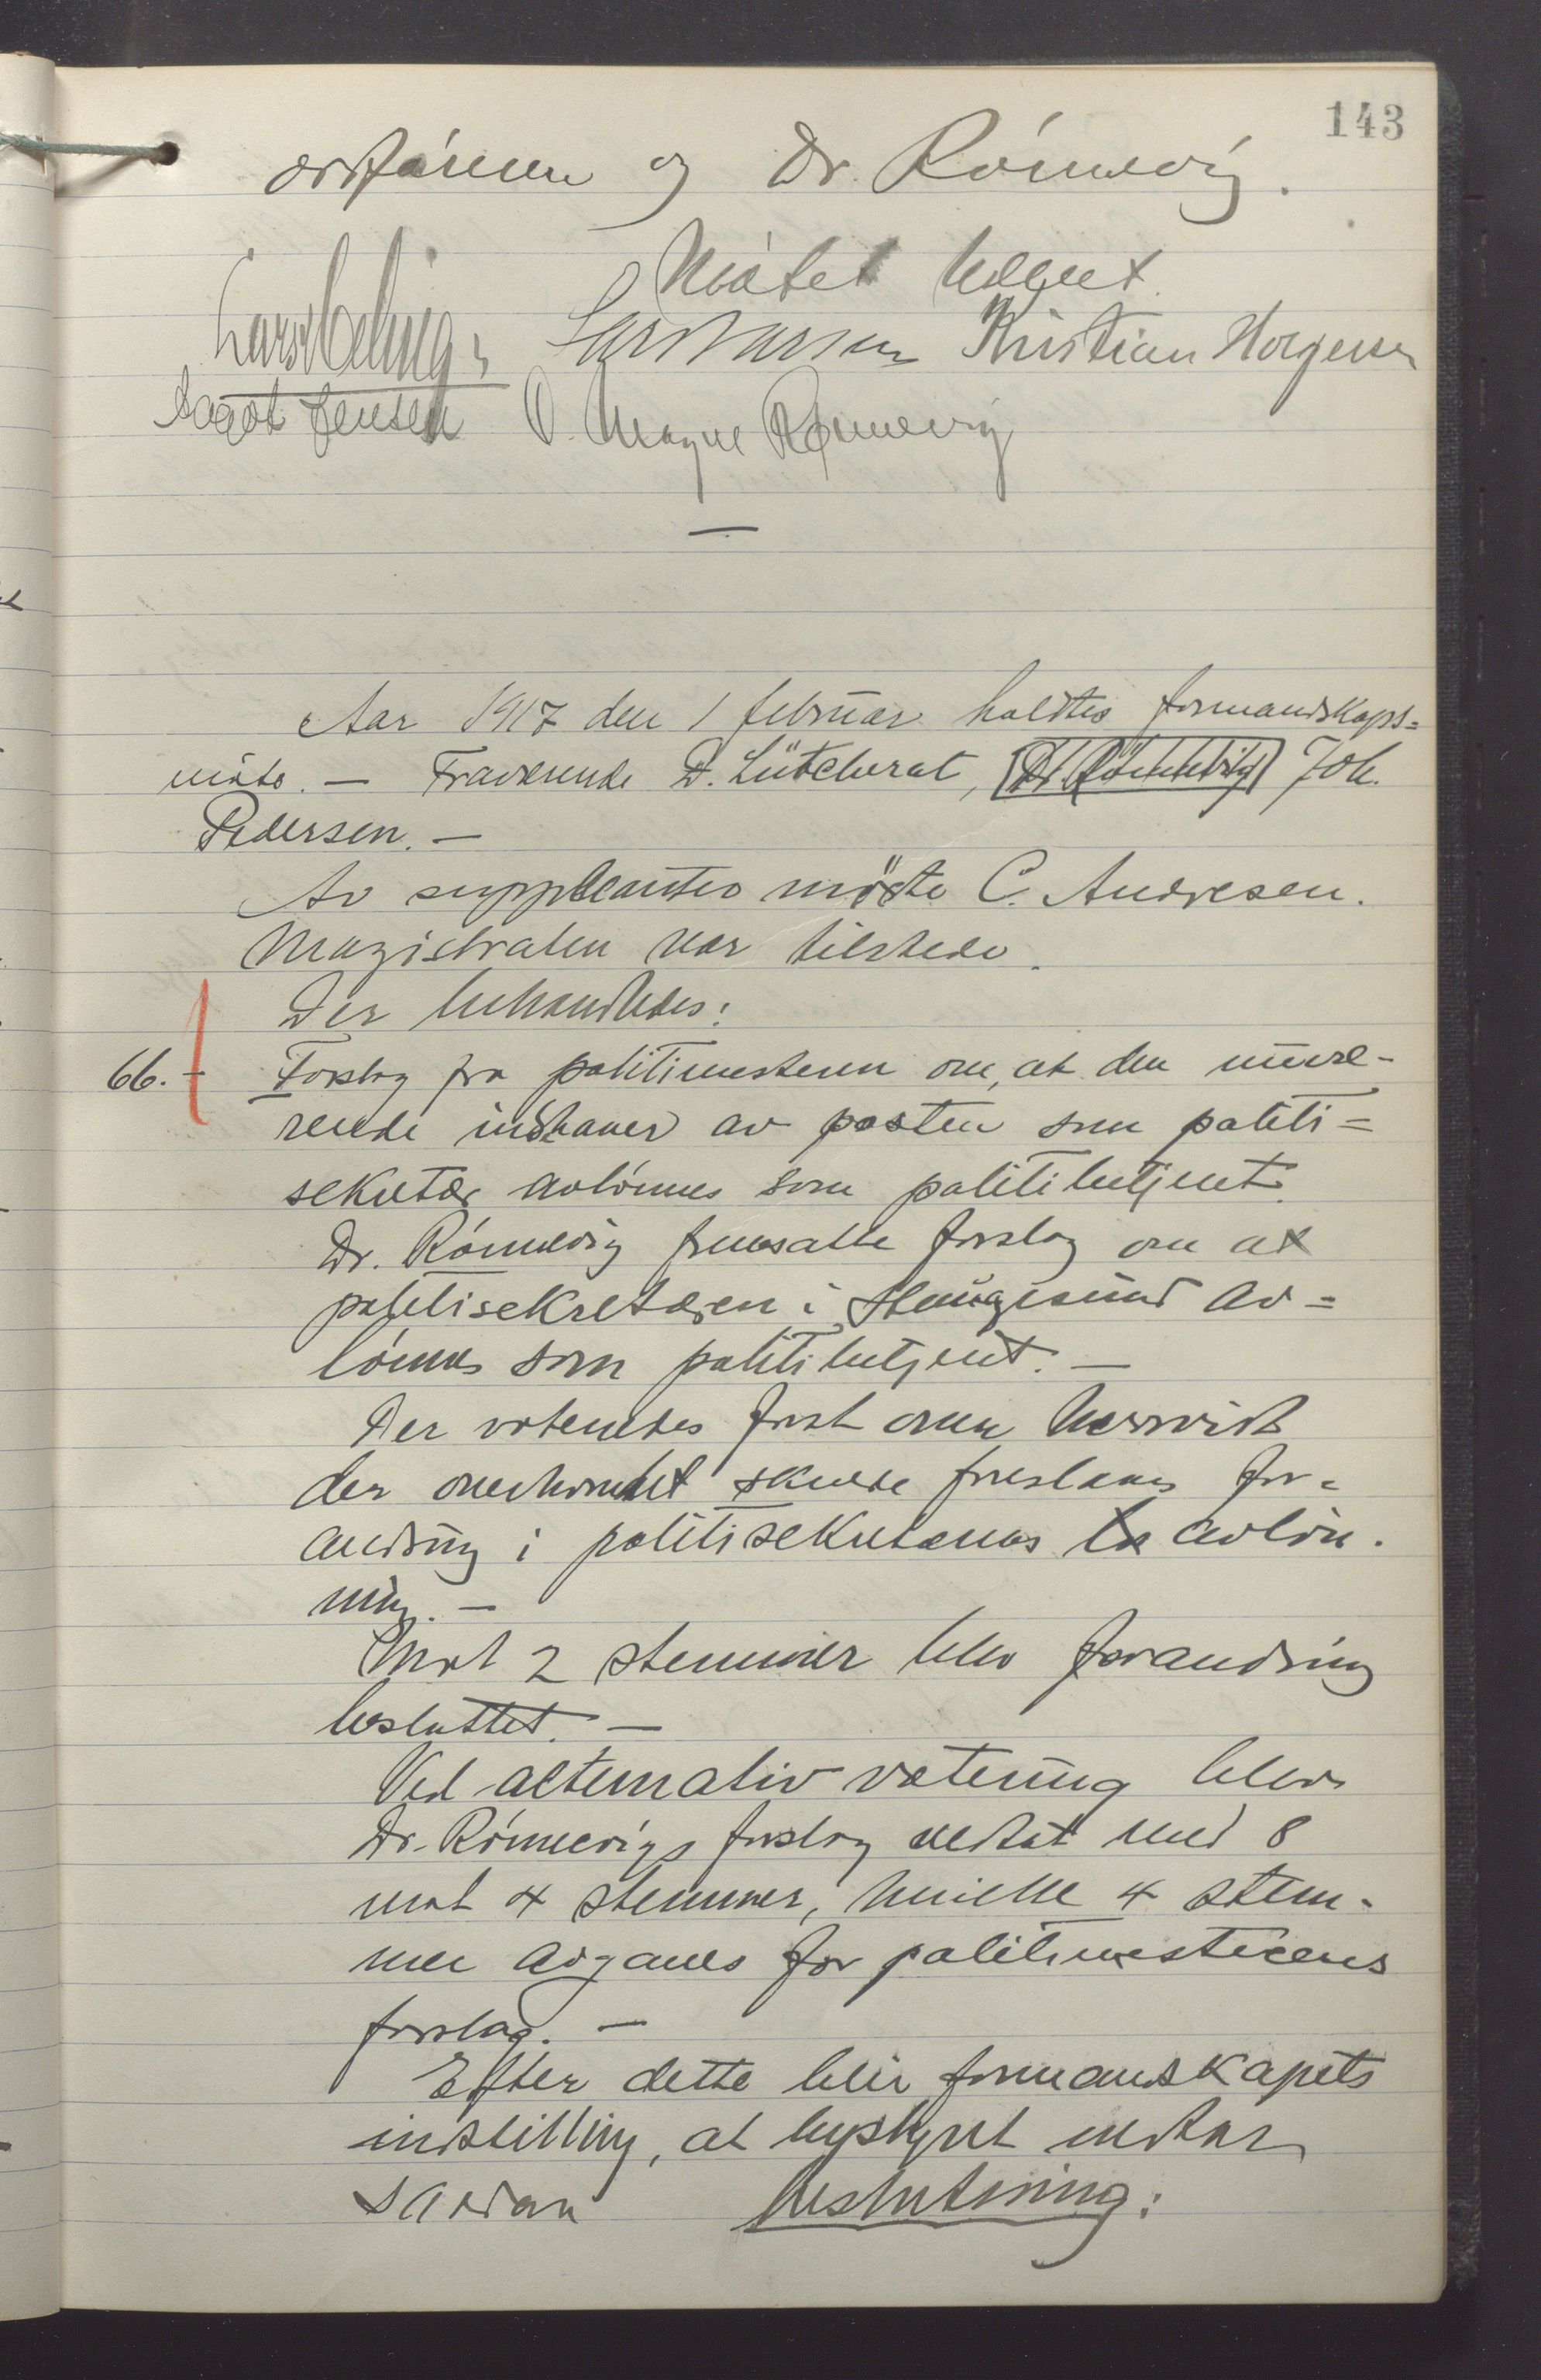 143
ordføreren og Dr. Rónnevig.
Mötet hævet.
Kristian Horgesen
Aagot Jensen O. Magne Rønnevig
Aar 1917 den 1 februar holdtes formandskaps=
möte. — Fraværende D. Lütcherat, Dr. Rönnevig Joh.
Pedersen. —
Av suppleanter mötte C. Andresen.
Magistraten var tilstede.
Der behandledes:
66. - Forslag fra politimesteren om, at den nuvæ-
rende indehaver av posten som politi=
sekretær avlönnes som politibetjent.
Dr. Rónnevig fremsatte forslag om at
politisekretæren i Haugesund av=
lönnes som politibetjent. —
Der votertes först om hvorvidt
der overhodet skulde foreslaaes for=
andring i politisekretærens avlön.
ning. —
Mot 2 stemmer blev forandring
besluttet. —
Ved alternativ votering blev
Dr. Rónnevigs forslag vedtat med 8
mot 4 stemmer, hvilke 4 stem-
mer avgaves for politimesterens
forslag. —
Efter dette blir formandskapets
indstilling, at bystyret vedtar
sådan beslutning: